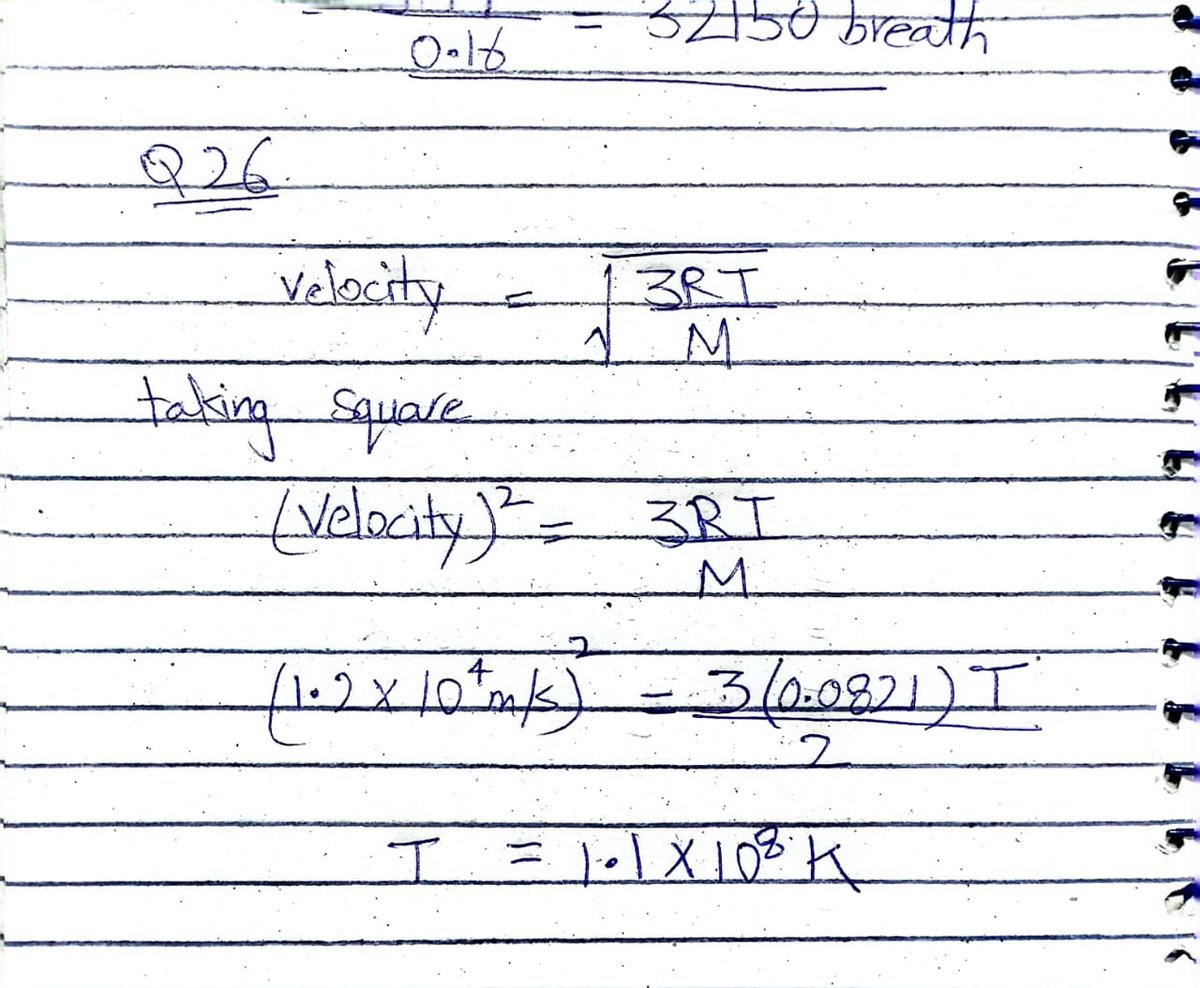 0.16 = 32150 breath
Q 26
Velocity = √ 3RT / M
taking square
(Velocity)² = 3RT / M
(1.2 x 10⁴ m/s)² = 3(0.0821) T / 2
T = 1.1 x 10⁸ K